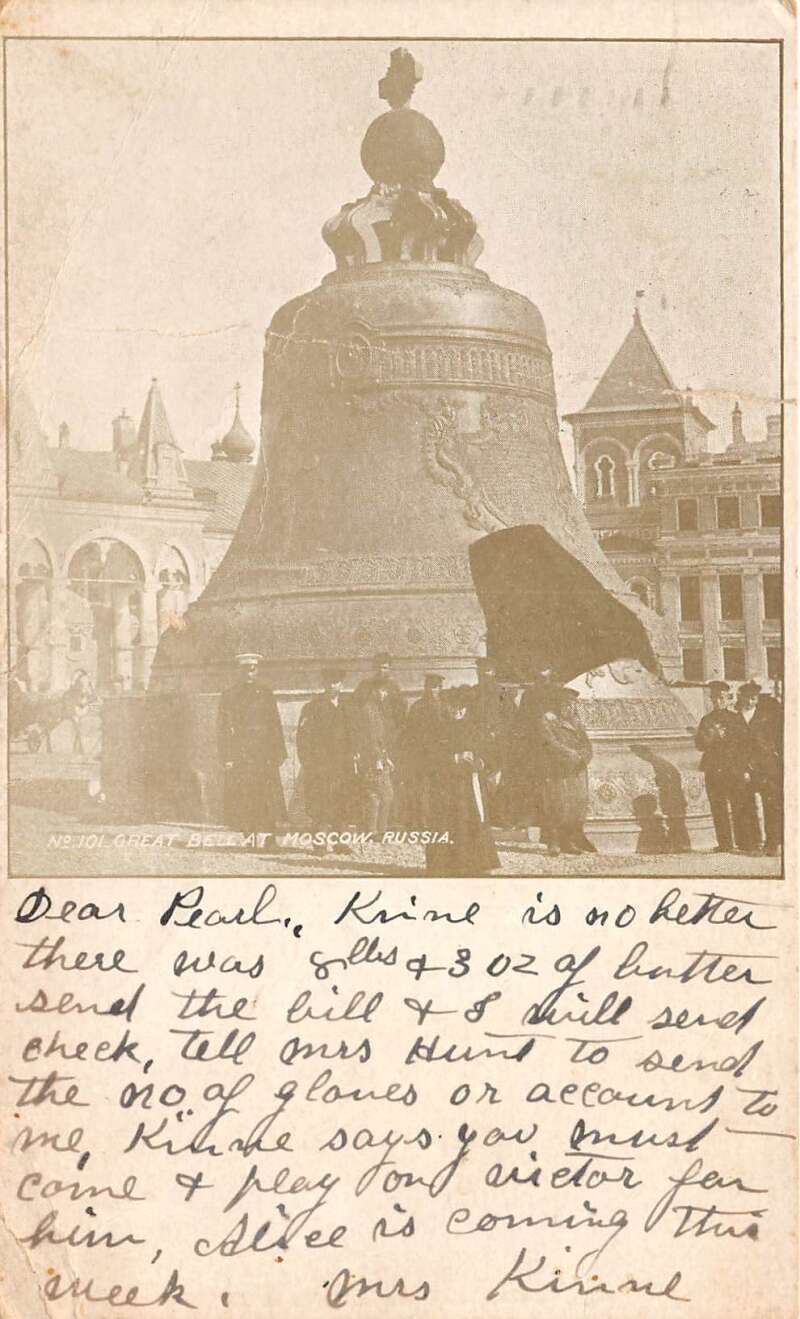 No. 101. GREAT BELL AT MOSCOW, RUSSIA.
Dear Pearl., Kinne is no better
there was 8 lbs & 3 oz of butter
send the bill & I will send
check, tell Mrs Hunt to send
the no. of gloves or account to
me, Kinne says you must
come & play on victor for
him, Alice is coming this
week. Mrs Kinne